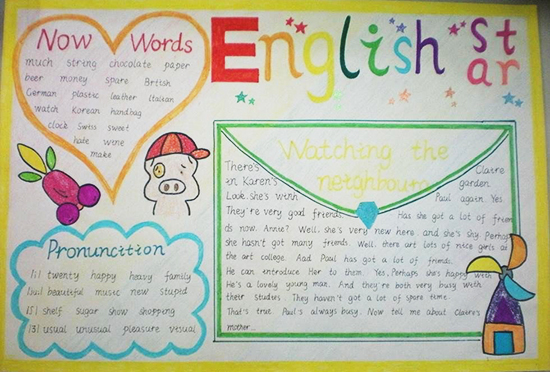 English star
Now Words
much string chocolate paper
beer money spare British
German plastic leather Italian
watch Korean handbag
clock Swiss sweet
hate wine
make
Pronuncition
[i] twenty happy heavy family
[ju:] beautiful music new stupid
[ʃ] shelf sugar show shopping
[ʒ] usual unusual pleasure visual
Watching the
neighbours
There's Claire
in Karen's garden.
Look, she's with Paul again. Yes.
They're very good friends. Has she got a lot of frien
ds now, Annie? Well, she's very new here and she's shy. Perhaps
she hasn't got many friends. Well, there art lots of nice girls at
the art college. And Paul has got a lot of friends.
He can introduce Her to them. Yes, Perhaps she's happy with
He's a lovely young man. And they're both very busy with
their studies. They haven't got a lot of spare time.
That's true. Paul's always busy. Now tell me about Claire's
mother...